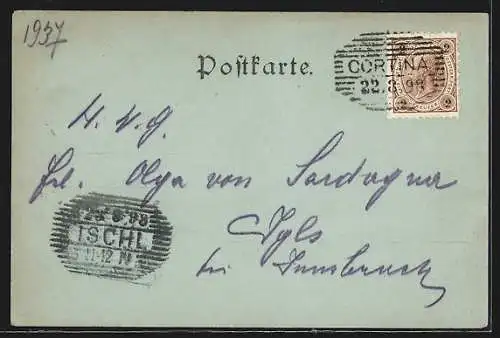 1937
Postkarte.
CORTINA
22.8.98
2
2
H. W. G.
Frl. Olga von Sardagna
Igls
bei Innsbruck
8.98
ISCHL
11-12